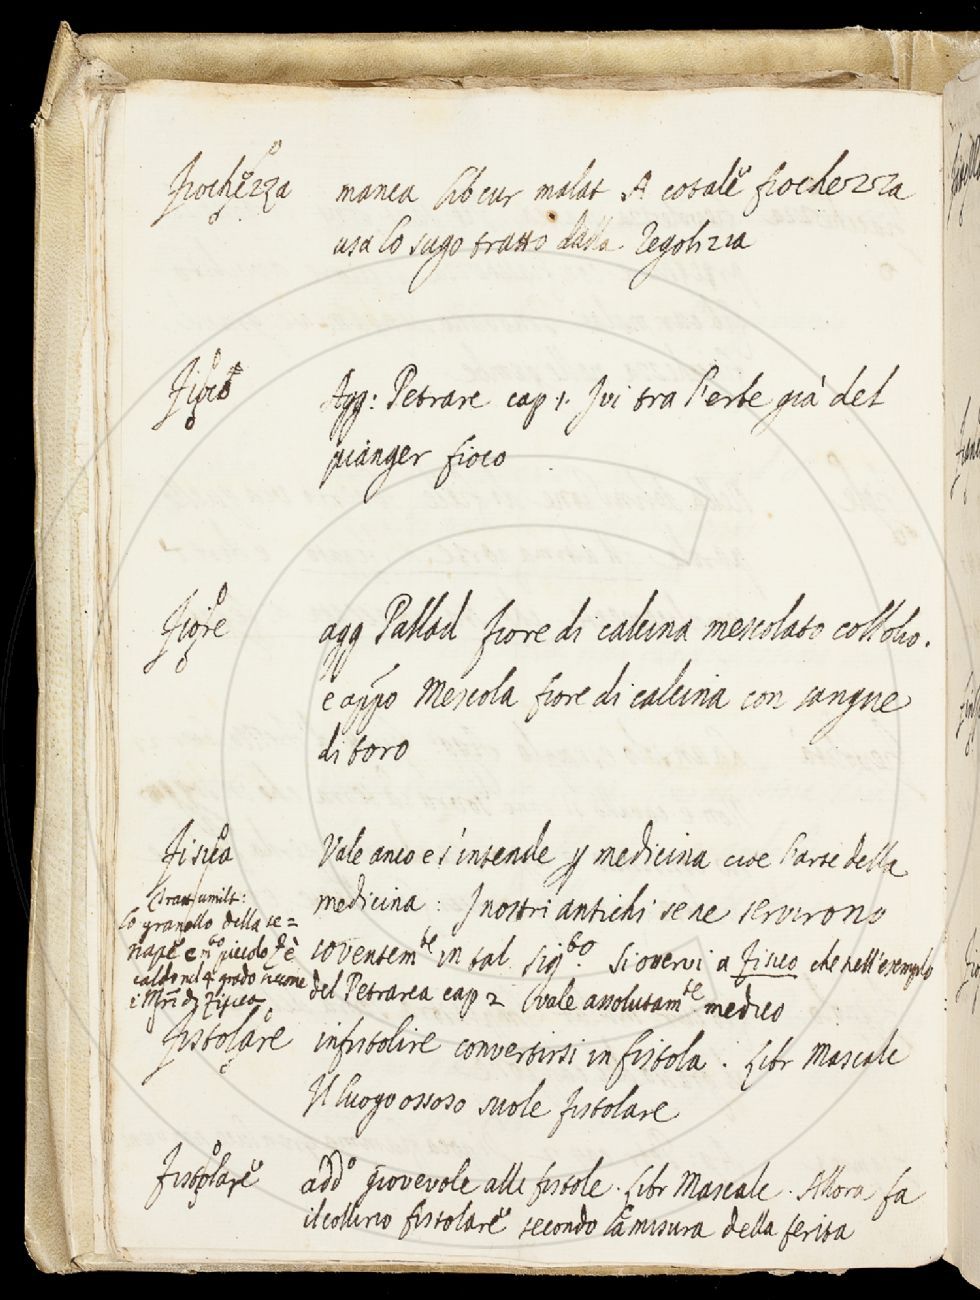 fiochezza manca Lib cur malat A cotale fiochezza
usa lo sugo tratto dalla regolizia
fioco Agg: Petrarc cap 1. Ivi tra l'erbe già del
pianger fioco
fiore agg Pallad fiore di calcina mescolato coll'olio.
e appo Mescola fiore di calcina con sangue
di toro
fisica Vale anco e s'intende p medicina cioe l'arte della
medicina: I nostri antichi se ne servirono
soventemte in tal sigto. Si overvi a fisico che nell'esempio
del Petrarca cap 2 vale assolutamte medico
lo granello della se=
nape e piccolo è
caldo nel 4 grado secone
fistolare infistolire convertirsi in fistola. Libr Mascalc
Il luogo ossoso suole fistolare
fistolare addo giovevole alle fistole. Libr Mascalc. Allora fa
il collirio fistolare secondo la misura della ferita